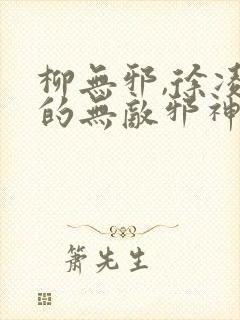 柳無邪,徐凌
的無敵邪神
簫先生